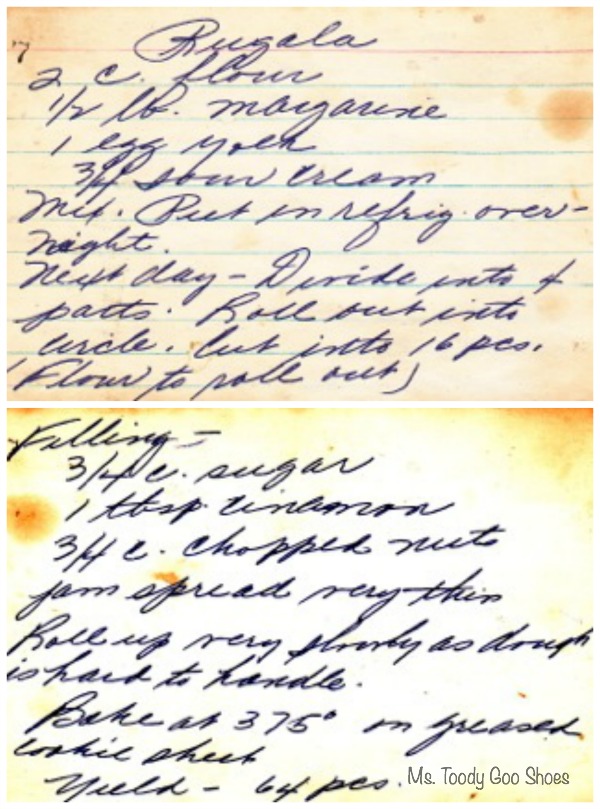 Rugala
2 c. flour
1/2 lb. margarine
1 egg yolk
3/4 sour cream
Mix. Put in refrig. over-
night.
Next day - Divide into 4
parts. Roll out into
circle. Cut into 16 pcs.
(Flour to roll out)
Filling -
3/4 c. sugar
1 tbsp. cinamon
3/4 c. chopped nuts
jam spread very thin
Roll up very slowly as dough
is hard to handle.
Bake at 375° on greased
cookie sheet
Yield - 64 pcs.
Ms. Toody Goo Shoes